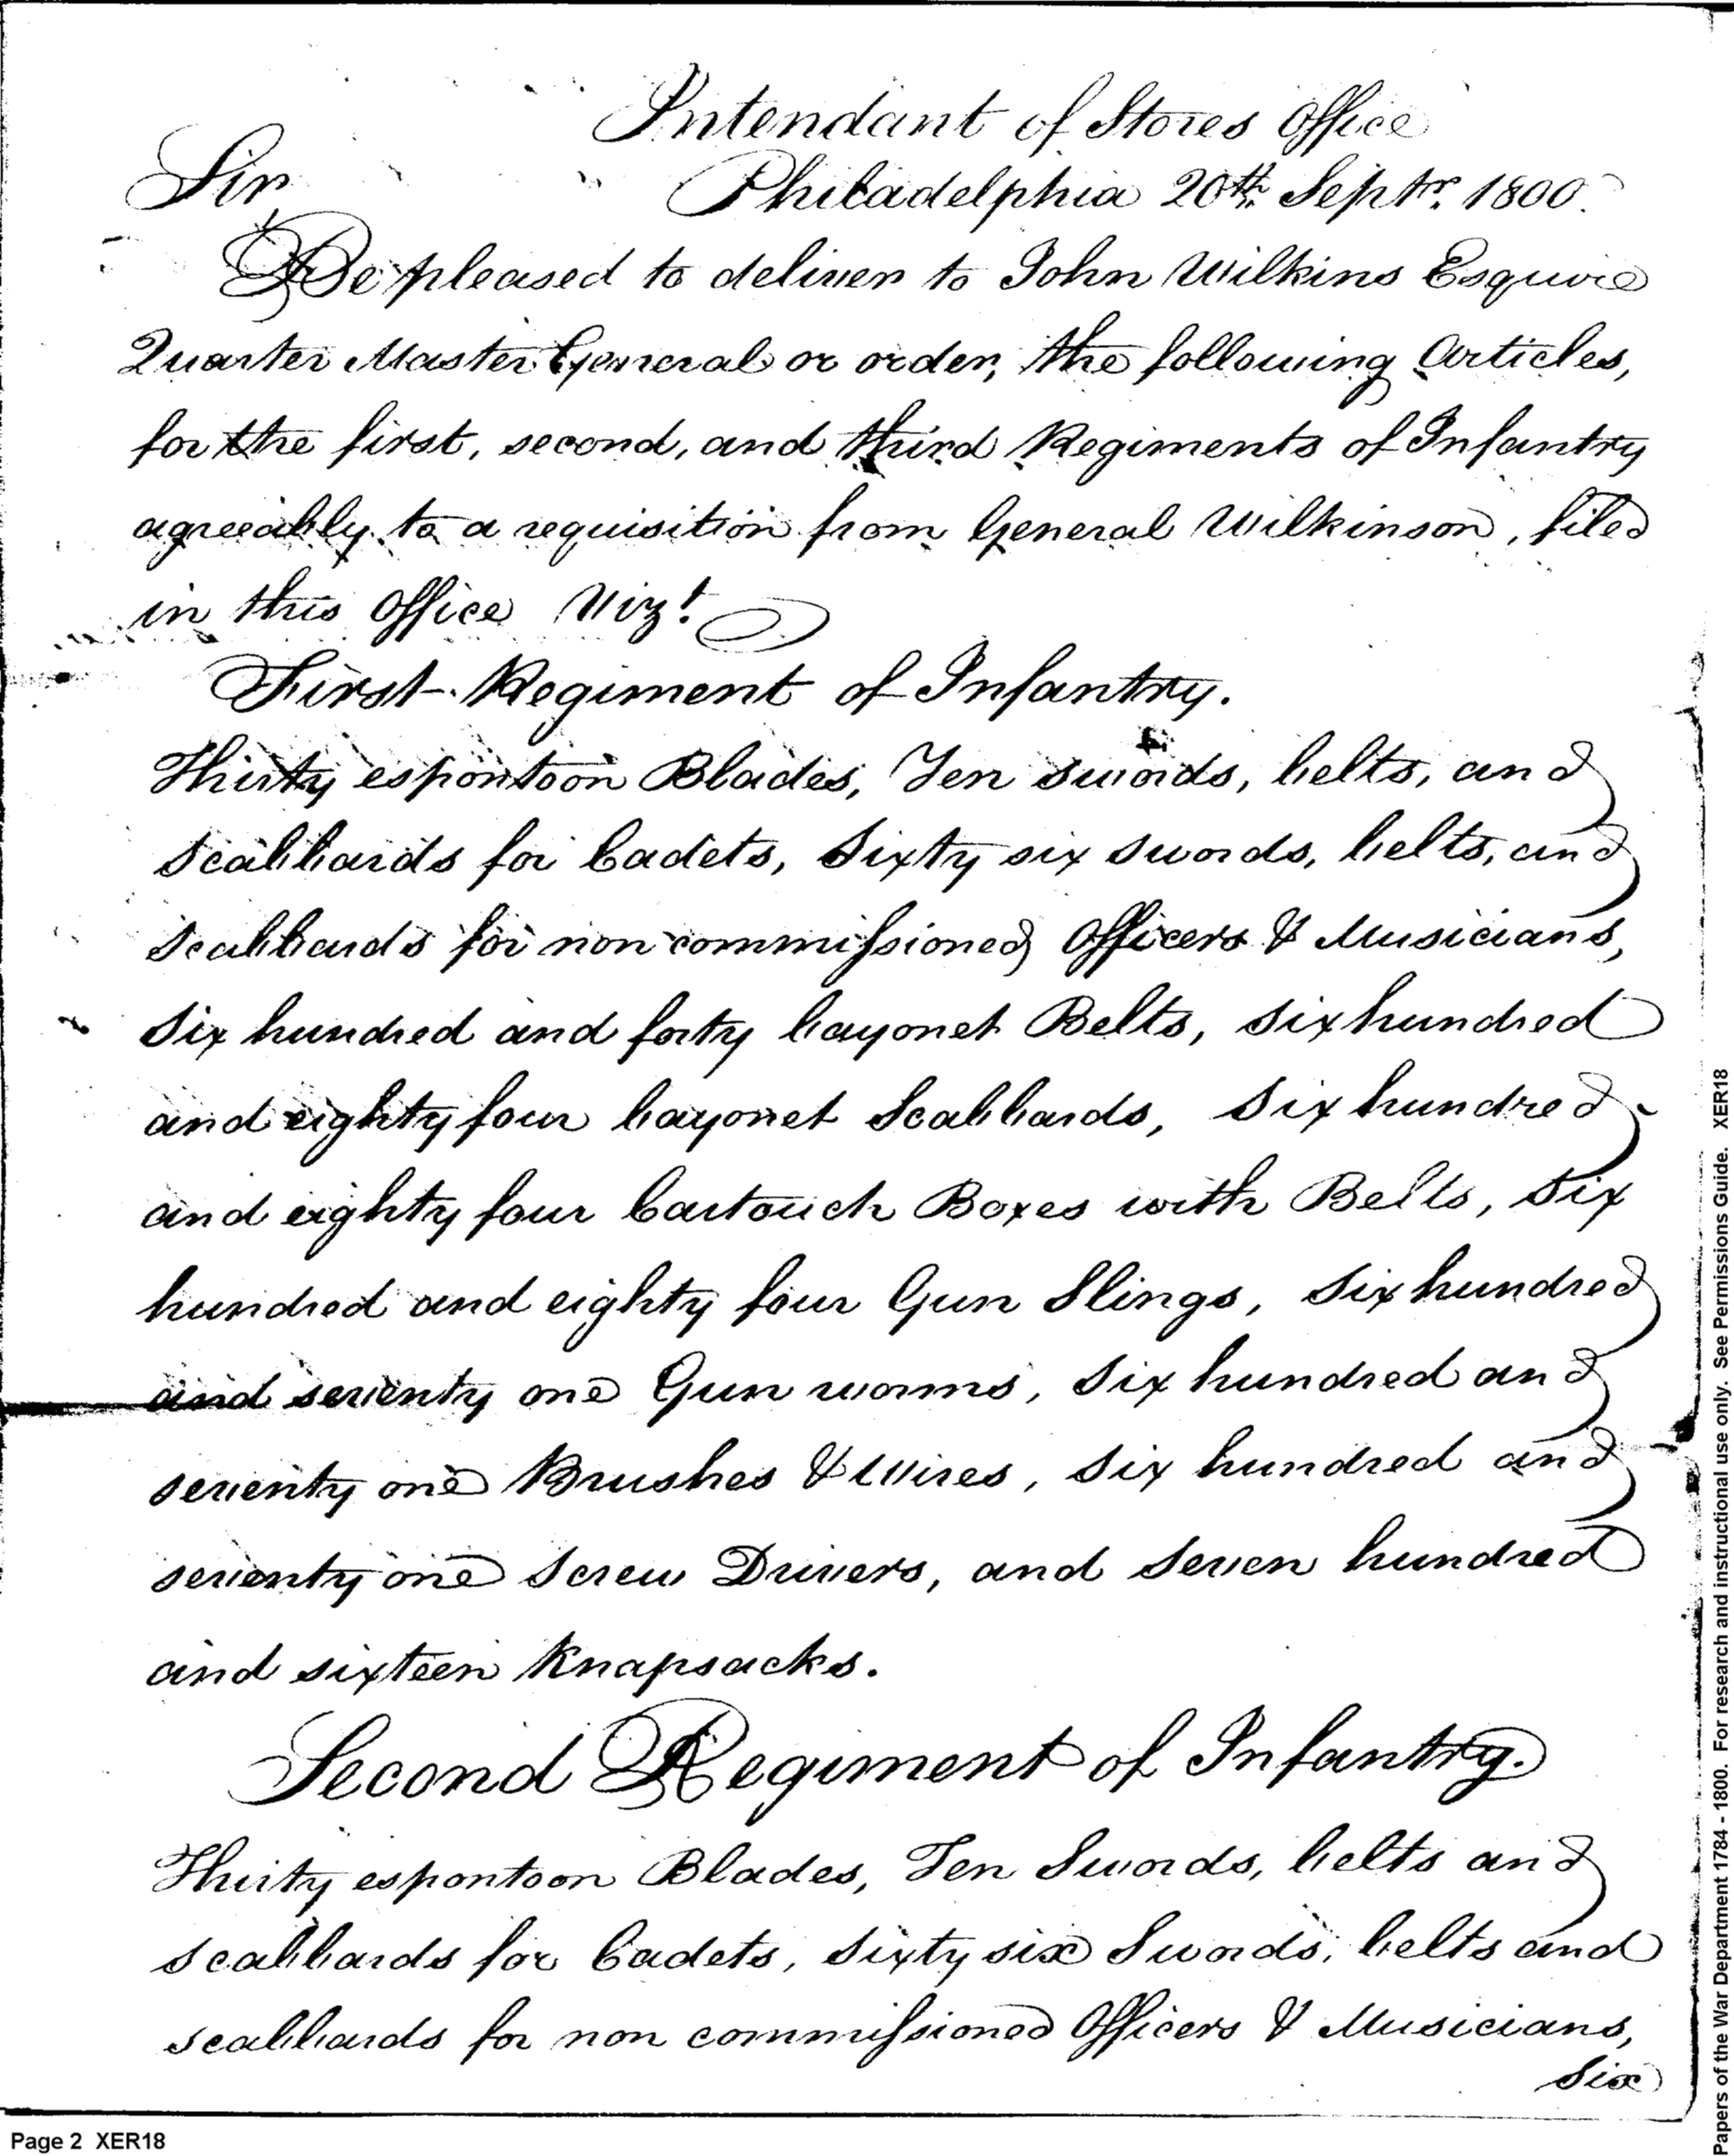 Intendant of Stores Office
Sir
Philadelphia 20th. Septr. 1800.
Be pleased to deliver to John Wilkins Esquire
Quarter Master General or order, the following Articles,
for the first, second, and third Regiments of Infantry
agreeably to a requisition from General Wilkinson, filed
in this Office Vizt.
First Regiment of Infantry.
Thirty espontoon Blades, Ten swords, belts, and
Scabbards for Cadets, Sixty six swords, belts, and
Scabbards for non commissioned Officers & Musicians,
Six hundred and forty bayonet Belts, six hundred
and eighty four bayonet Scabbards, Six hundred
and eighty four Cartouch Boxes with Belts, Six
hundred and eighty four Gun Slings, Six hundred
and seventy one Gun worms, Six hundred and
seventy one Brushes & Wires, Six hundred and
seventy one Screw Drivers, and Seven hundred
and sixteen Knapsacks.
Second Regiment of Infantry.
Thirty espontoon Blades, Ten Swords, belts and
Scabbards for Cadets, Sixty six Swords, belts and
scabbards for non commissioned Officers & Musicians,
Six
Page 2 XER18
Papers of the War Department 1784 - 1800. For research and instructional use only. See Permissions Guide. XER18